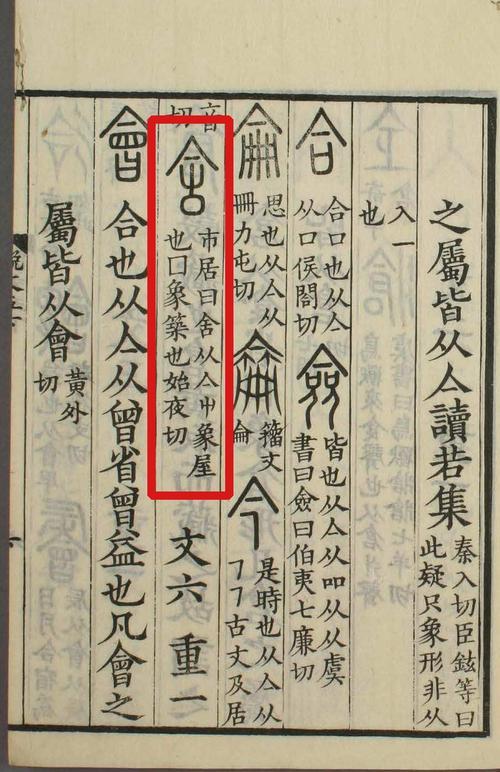 之屬皆从亼讀若集
秦入切臣鉉等曰
此疑只象形非从
入一
也
合
合口也从亼
从口侯閤切
僉
皆也从亼从吅从从虞
書曰僉曰伯夷七廉切
侖
思也从亼从
冊力屯切
籒文
侖
今
是時也从亼从
㇇㇇古文及居
音
切
舍
市居曰舍从亼屮象屋
也囗象築也始夜切
文六 重一
會 合也从亼从曾省曾益也凡會之
屬皆从會
黃外
切